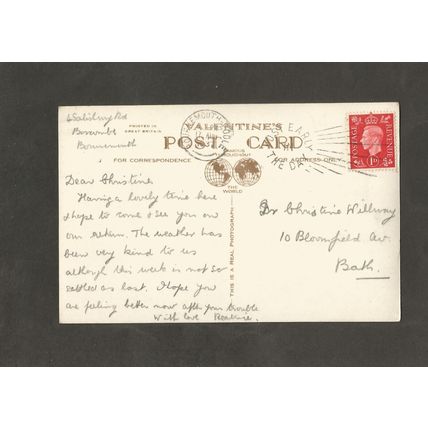 6 Salisbury Rd
Boscombe
Bournemouth
PRINTED IN
GREAT BRITAIN
VALENTINE'S
POST CARD
FAMOUS
THROUGHOUT
THE
WORLD
FOR CORRESPONDENCE
FOR ADDRESS ONLY
BOURNEMOUTH
POST EARLY
IN
THE DAY
POSTAGE
REVENUE
1D
THIS IS A REAL PHOTOGRAPH
Dear Christine
Having a lovely time here
& hope to come & see you on
our return. The weather has
been very kind to us
although this week is not so
settled as last. Hope you
are feeling better now after your trouble
With love
Dr Christine Willway
10 Bloomfield Av.
Bath.